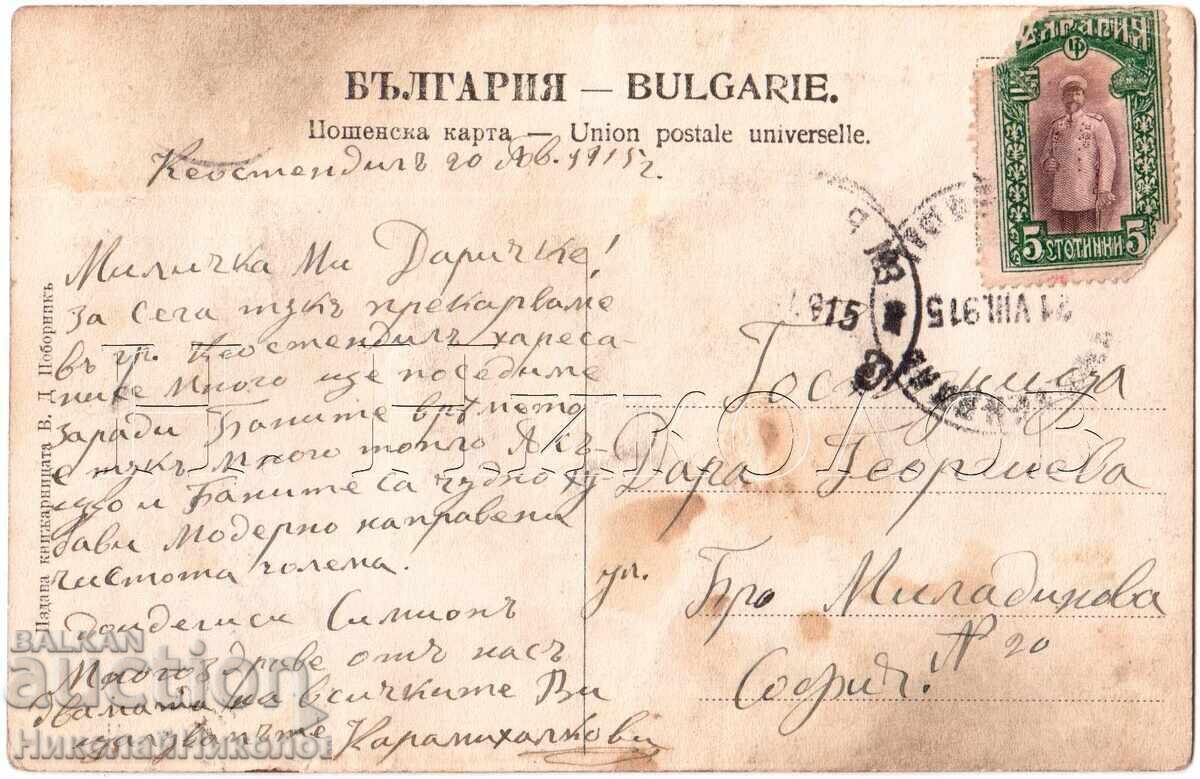 БЪЛГАРИЯ — BULGARIE.
Пощенска карта — Union postale universelle.
Кеостендилъ 20 Ав. 1915 г.
БЪЛГАРИЯ
5 СТОТИНКИ 5
21 VIII.915
915
Миличка Ми Даричке!
за сега тукъ прекарваме
въ гр. Кеостендилъ хареса-
ни се много ще поседиме
заради Баните времето
е тукъ много топло
и Баните са чудно ху
бави модерно направени
чистота големa.
Симионъ
Много здраве отъ насъ
на всичките Ви
Карамихалкови
Госпожица
Дара Георгиева
ул. Бр. Миладинова
N 20
София.
Издава книжарницата В. Д. Поборникъ
Н НИКОЛОВ
BALKAN
auction
НиколайНиколов